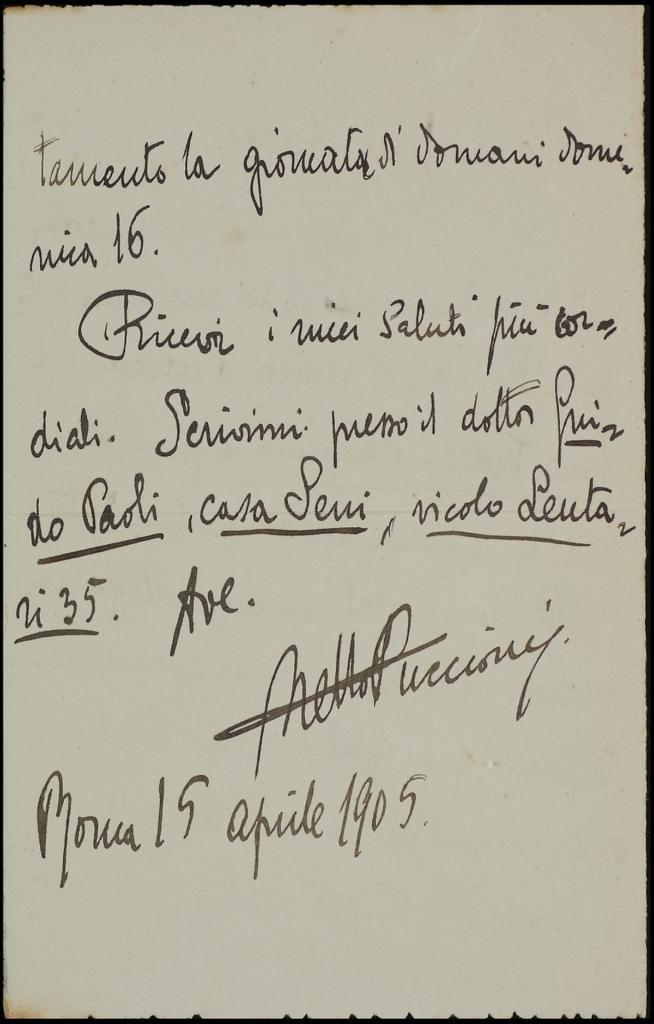 tamento la giornata di domani dome-
nica 16.
Ricevi i miei saluti più cor-
diali. Scrivimi presso il dottor Gui-
do Paoli, casa Seni, vicolo Leuta-
ri 35. Ave.
Nello Puccioni.
Roma 15 aprile 1905.